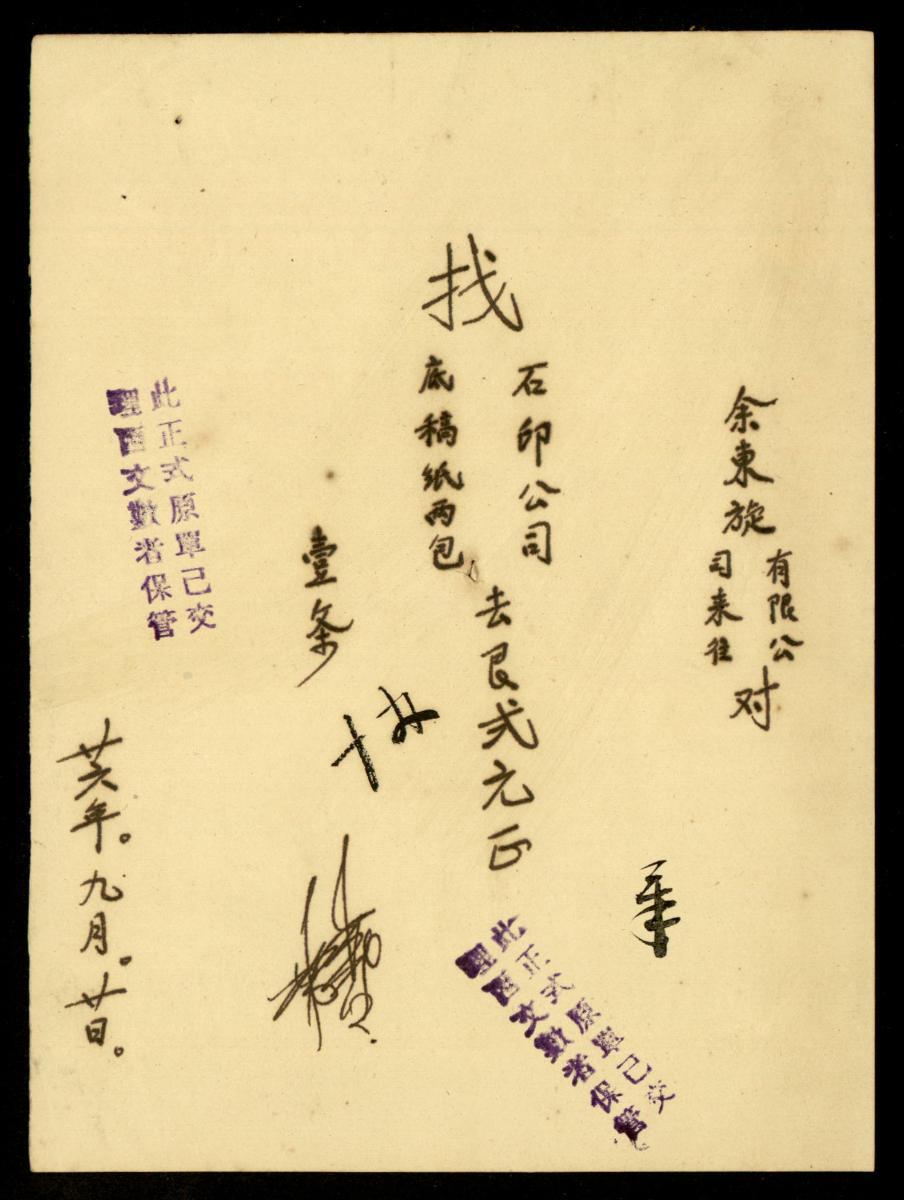 余東旋有限公
司来往对
找
石印公司
底稿紙两包
去艮弍元正
壹条
廿六年。九月。廿日。
此正式原單已交
理西文數者保管
此正式原單已交
理西文數者保管